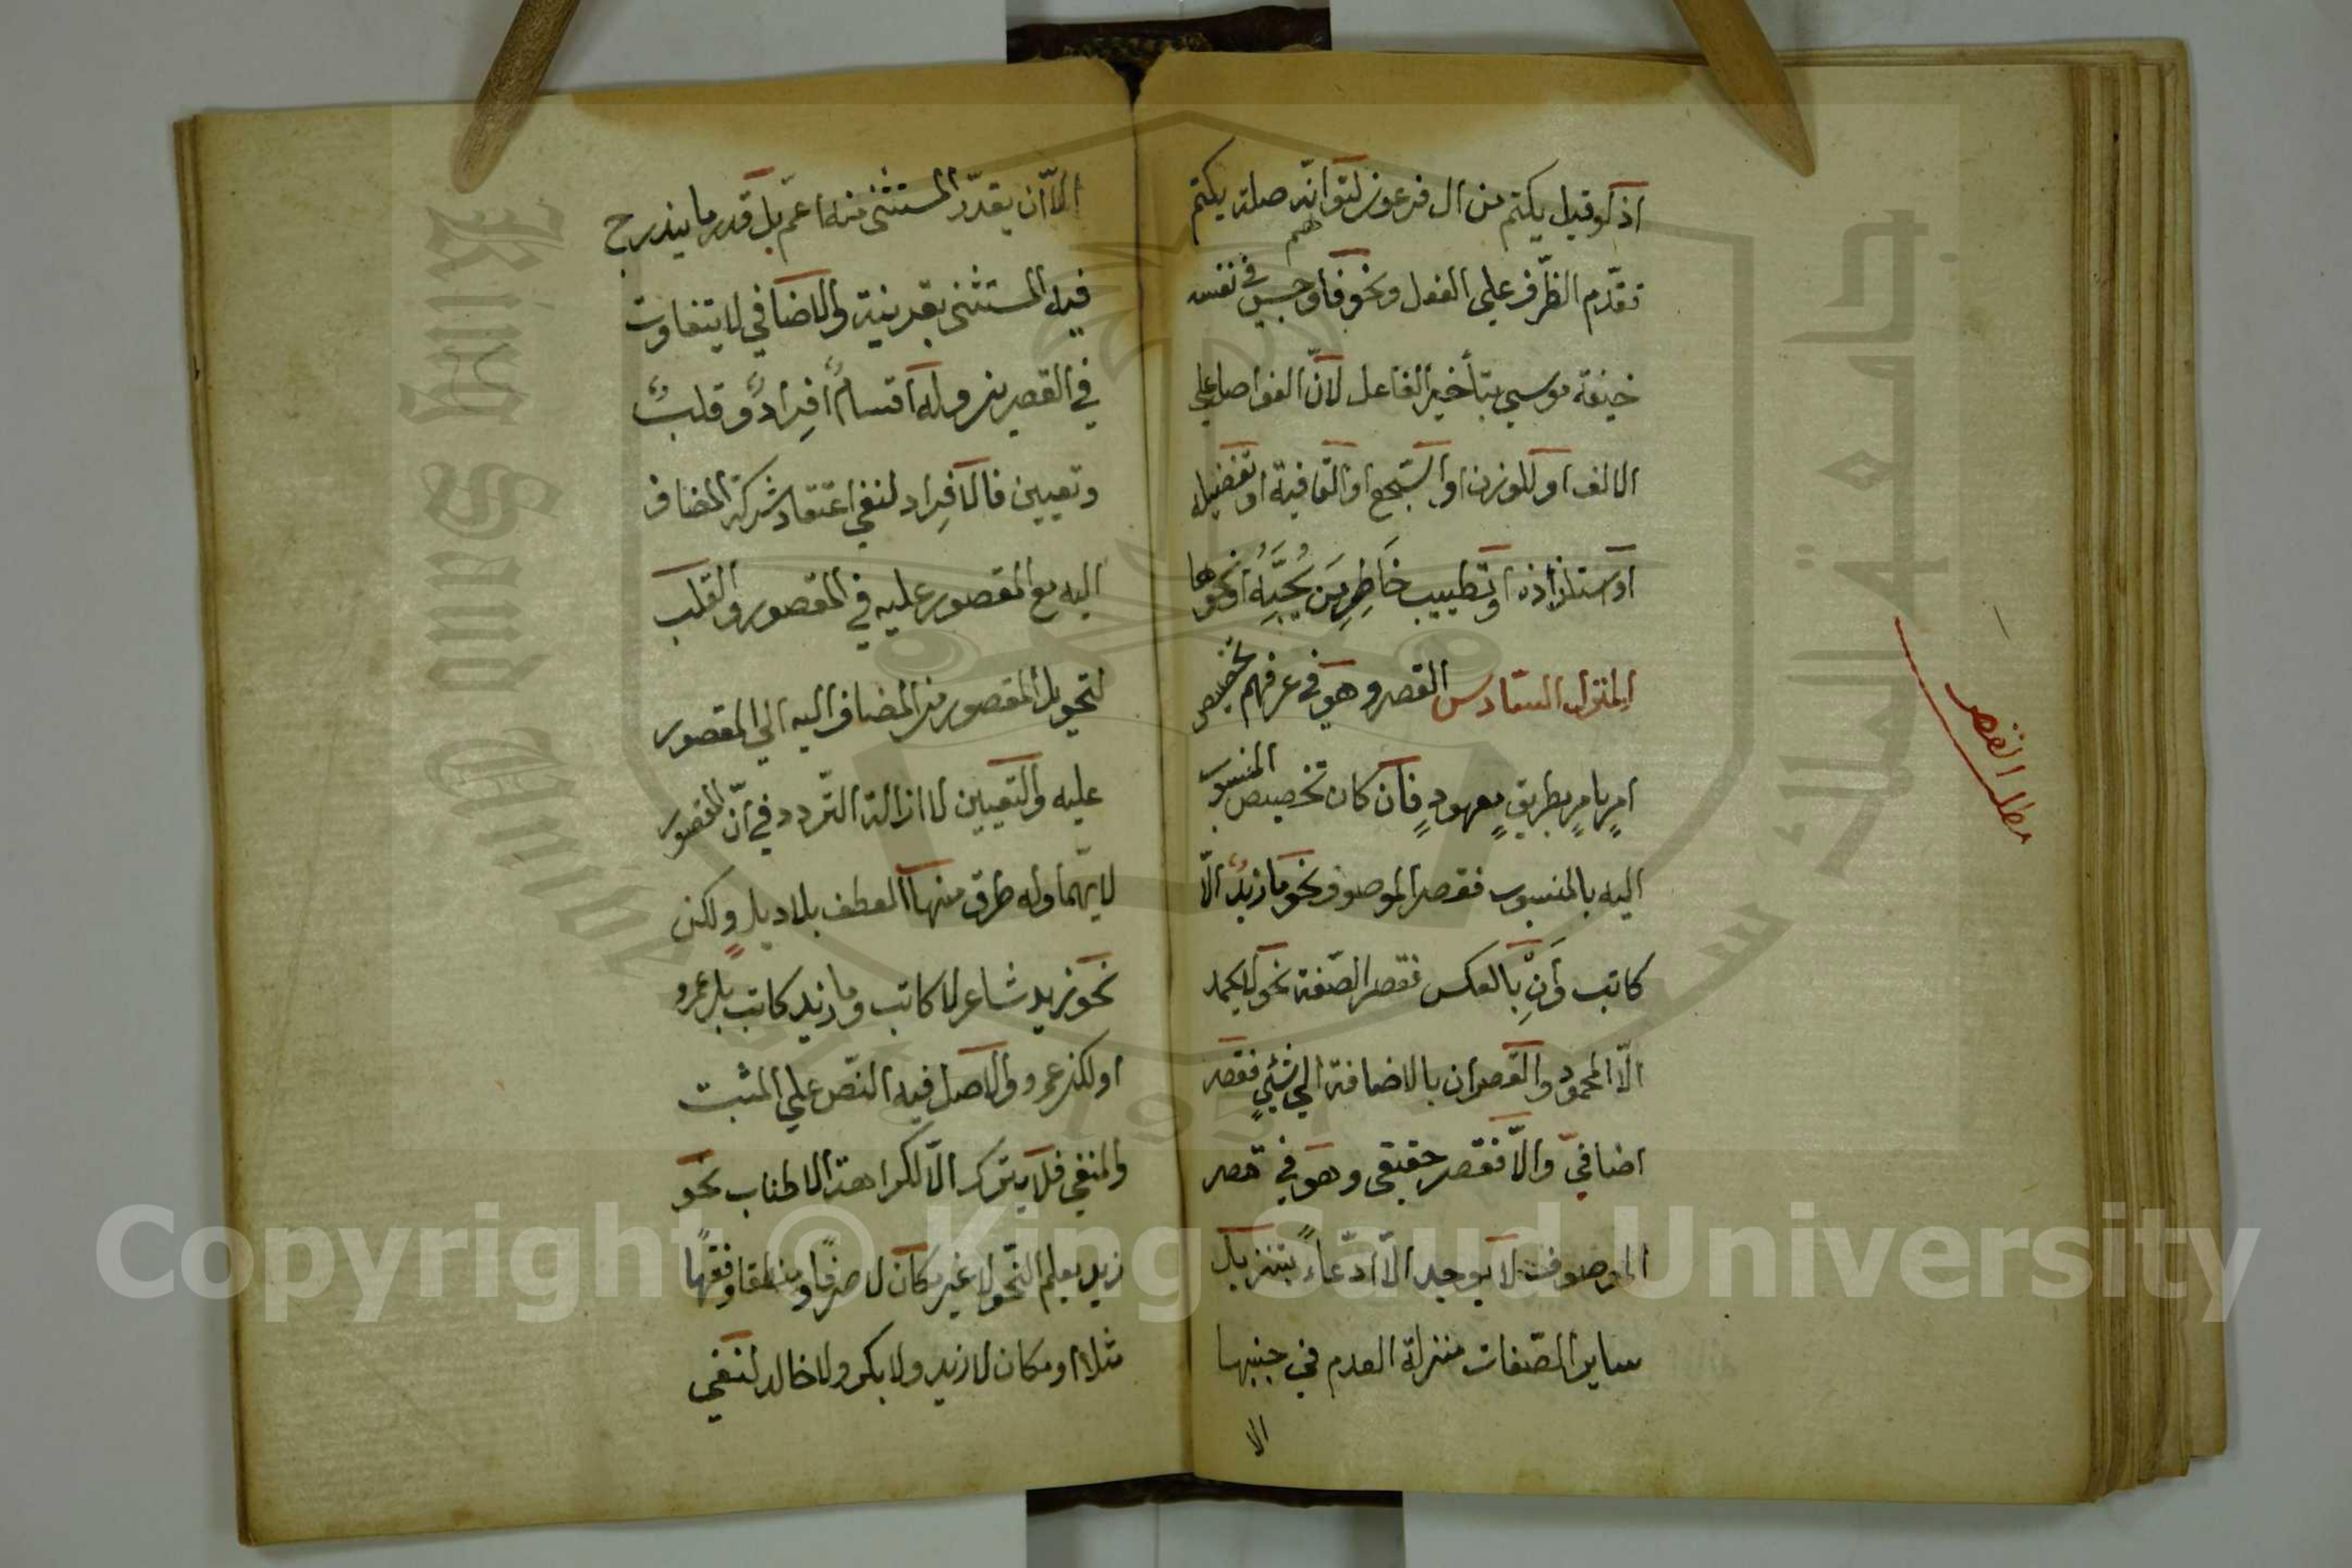 اذ لو قيل يكتم من ال فرعون لتوهم انّه صلة يكتم
تقدّم الظّرف على الفعل ونحو فاوجس في نفسه
خيفة موسى بتأخير الفاعل لانّ الفواصل على
الالف او للوزن او السّجع او القافية او تفضيله
او استلذاذه او تطييب خَاطِرِ مَن يُحِبُّهُ او نحوها
المنزل السّادس القصر وهو في عرفهم تخصيص
امرٍ بامرٍ بطريقٍ معهودٍ فان كان تخصيص المنسوب
اليه بالمنسوب فقصر الموصوف نحو ما زيدٌ الّا
كاتب وَاِنْ بالعكس فقصر الصّفة نحو لا يحمد
الّا المحمود والقصران بالاضافة الى شئٍ فقصر
اضافيّ والّا فقصر حقيقى وهو في قصر
الموصوف لا يوجد الّا ادّعاءً بتنزيل
ساير الصّفات منزلة العدم في جنبها
الا
مطلب القصر
الّا ان يقدّر المستثنى منه اعمّ بل قدر ما يندرج
فيه المستثنى بقرينة والاضافي لا يتفاوت
في القصرين وله اقسامٌ اِفرادٌ وقلبٌ
وتعيين فالاِفراد لنفي اعتقاد شركة المضاف
اليه مع المقصور عليه في المقصور والقلب
لتحويل المقصور من المضاف اليه الى المقصور
عليه والتعيين لازالة التّردد في انّ المقصور
لايّهما وله طرق منها العطف بلا وبل ولكن
نحو زيد شاعر لا كاتب وما زيد كاتب بل عمرو
او لكن عمرو والاصل فيه النّص على المثبت
والمنفي فلا يترك الّا لكراهة الاطناب نحو
زيد يعلم النّحو لا غير مكان لا صرفًا ومنطقا وفقهًا
مثلا او مكان لا زيد ولا بكر ولا خالد لنفي
Copyright © King Saud University